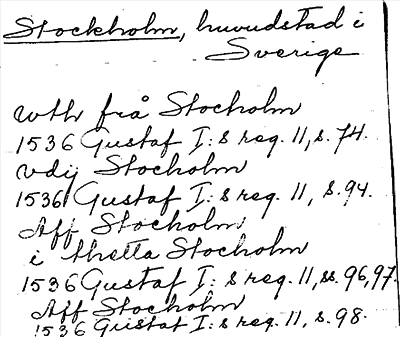 Stockholm, huvudstad i
Sverige
wth frå Stocholm
1536 Gustaf I:s reg. 11, s. 74.
vdij Stocholm
1536 Gustaf I:s reg. 11, s. 94.
Aff Stocholm
i thetta Stocholm
1536 Gustaf I:s reg. 11, ss. 96, 97.
Aff Stocholm
1536 Gustaf I:s reg. 11, s. 98.